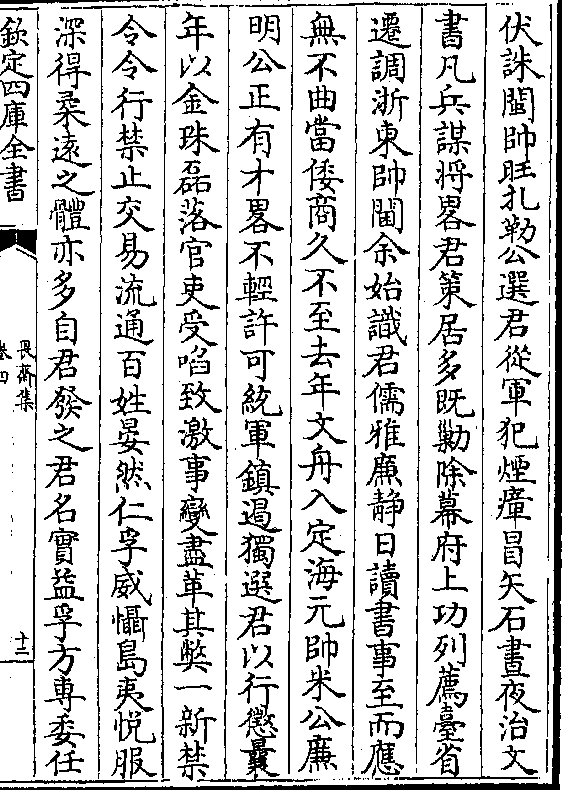 伏誅閫帥旺扎勒公選君從軍犯煙瘴冒矢石晝夜治文
書凡兵謀將畧君策居多既勦除幕府上功列薦臺省
遷調浙東帥閫余始識君儒雅廉静日讀書事至而應
無不曲當倭商久不至去年文舟入定海元帥米公廉
明公正有才畧不輕許可統軍鎮遏獨選君以行懲曩
年以金珠磊落官吏受啗致激事變盡革其獘一新禁
令令行禁止交易流通百姓晏然仁孚威懾島夷悦服
深得柔逺之體亦多自君發之君名實益孚方専委任
欽定四庫全書
畏齋集
卷四
十三